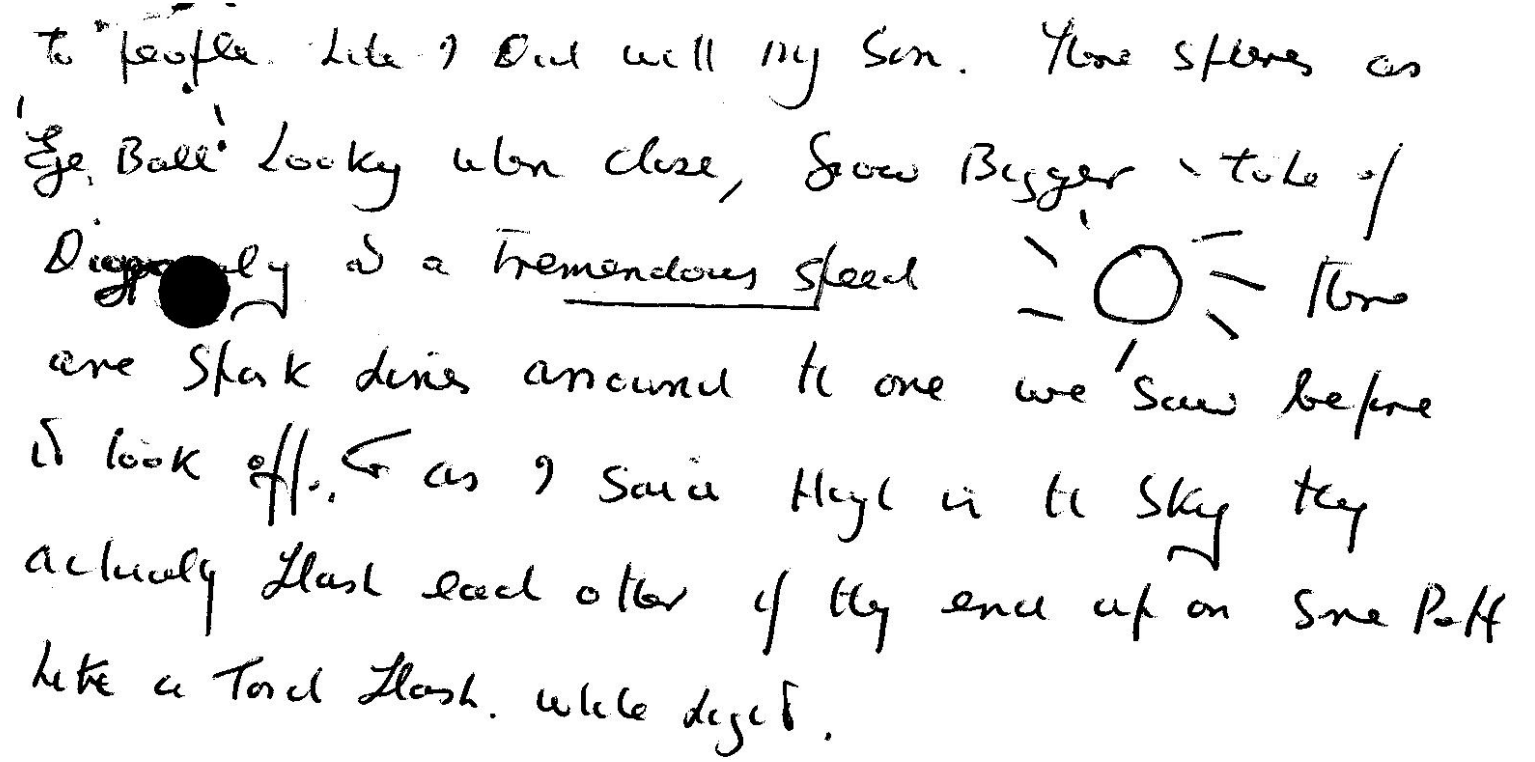 to people. Like I Did with My Son. These spheres as
'Eye Ball' Looky when close, Grow Bigger & take off
at a Tremendous speed There
are Spark Lines arround the one we saw before
it took off. as I said High in the Sky they
actually Flash each other if they end up on Same Path
Like a Torch Flash. white light.